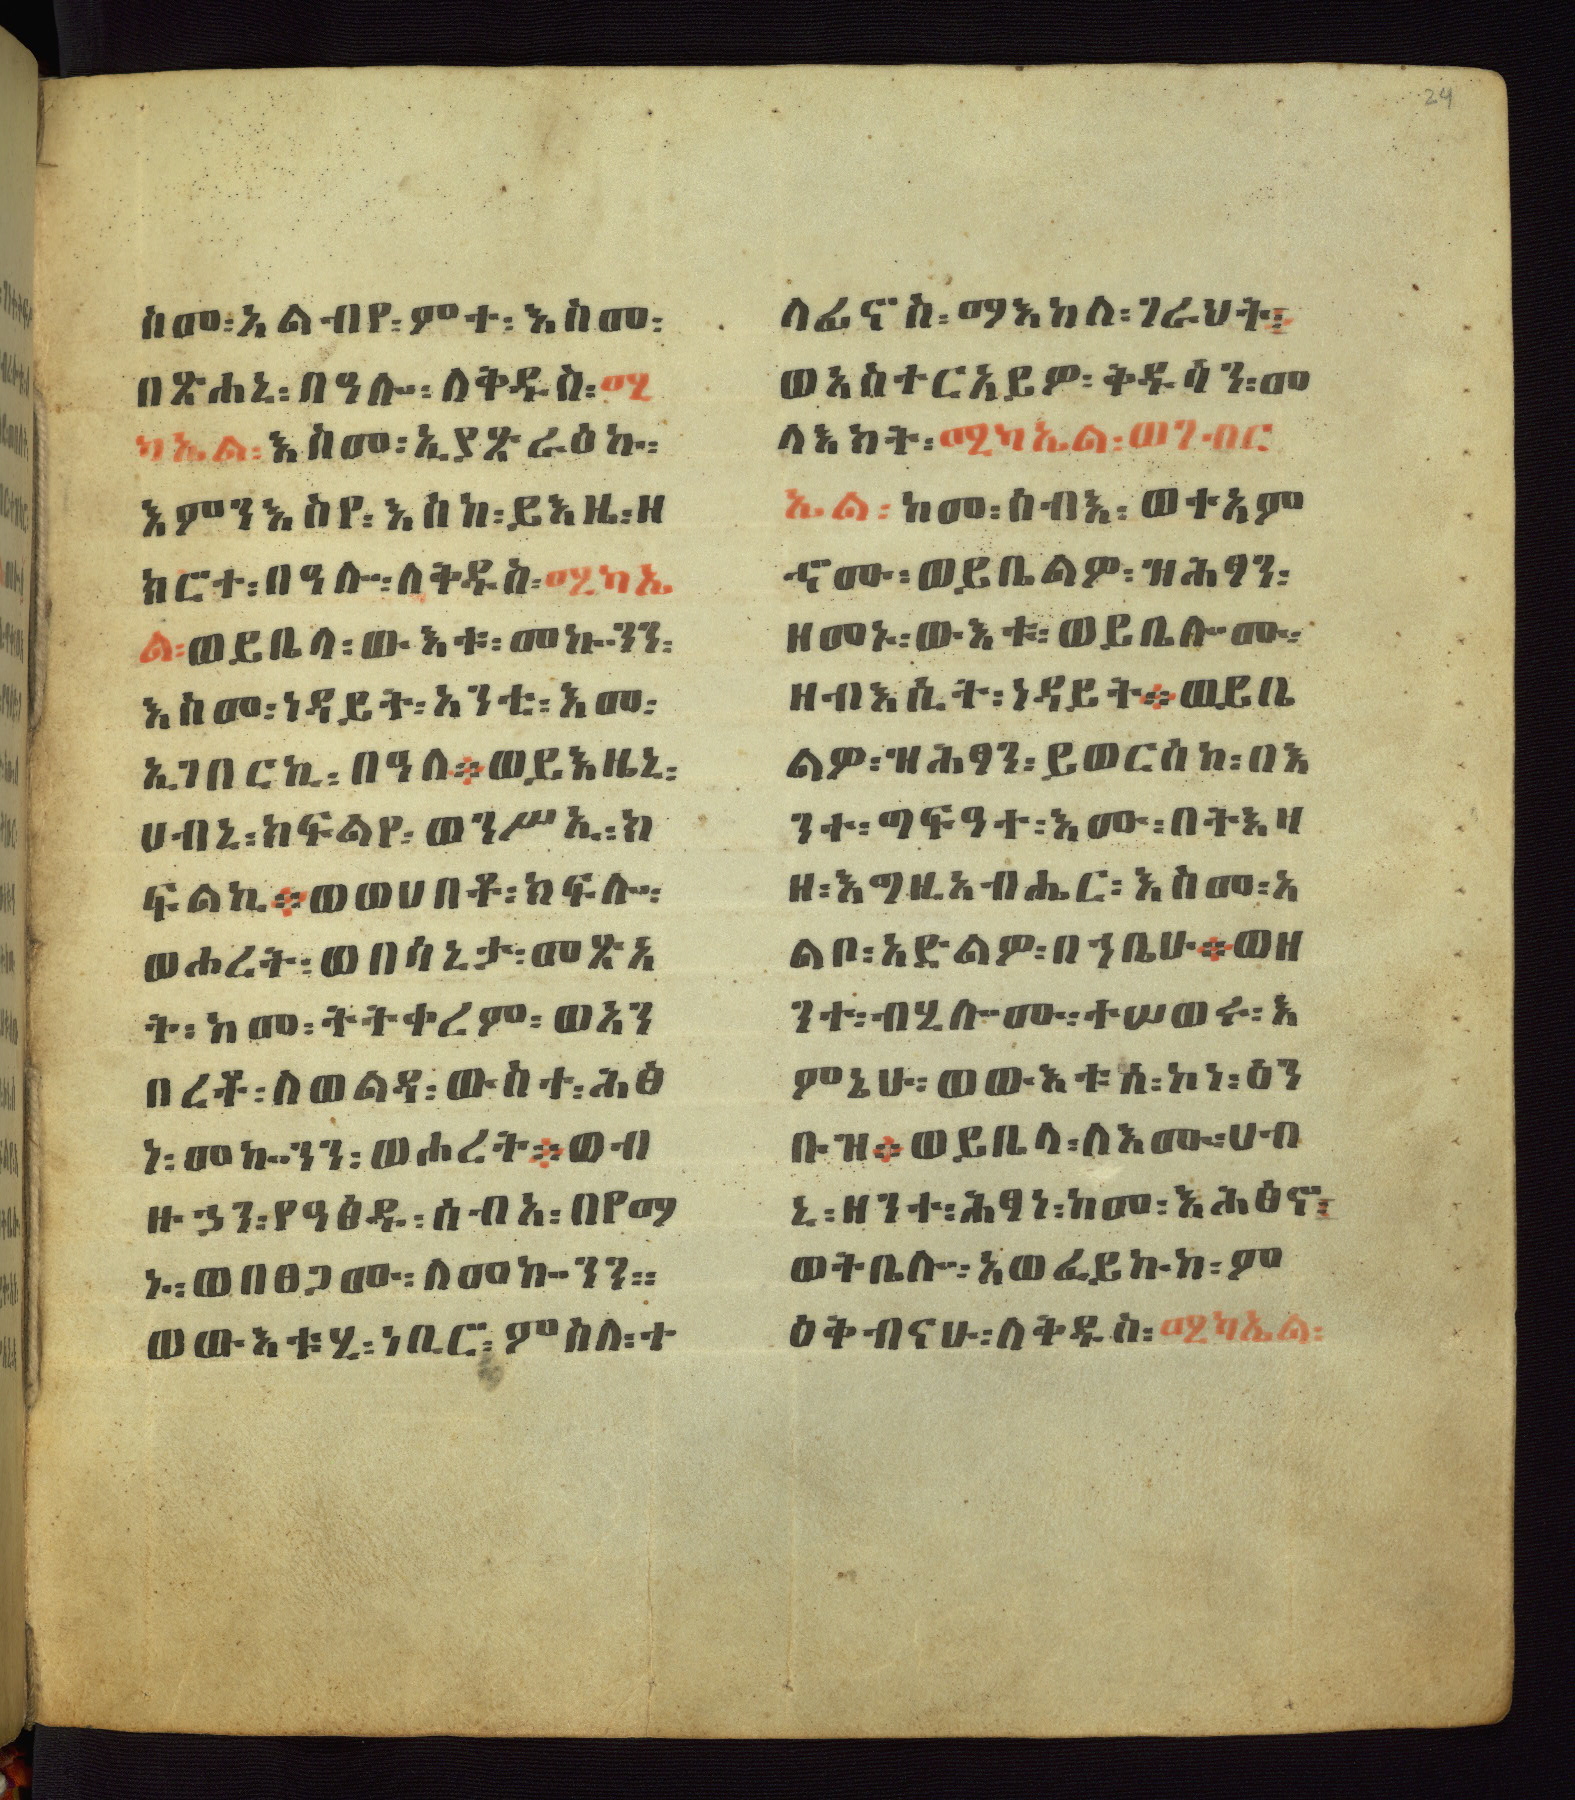 24
ስመ፡አልብየ፡ምተ፡እስመ፡
በጽሐኒ፡በዓሉ፡ለቅዱስ፡ሚ
ካኤል፡እስመ፡ኢያጽራዕኩ፡
እምንእስየ፡እስከ፡ይእዜ፡ዘ
ክርተ፡በዓሉ፡ለቅዱስ፡ሚካኤ
ል፡ወይቤላ፡ውእቱ፡መኰንን፡
እስመ፡ነዳይት፡አንቲ፡እመ፡
ኢገበርኪ፡በዓለ፨ወይእዜኒ፡
ሀብኒ፡ክፍልየ፡ወንሥኢ፡ክ
ፍልኪ፨ወወሀበቶ፡ክፍሉ፡
ወሐረት፡ወበሳኒታ፡መጽአ
ት፡ከመ፡ትትቀረም፡ወአን
በረቶ፡ለወልዳ፡ውስተ፡ሕፅ
ነ፡መኰንን፡ወሐረት፨ወብ
ዙኃን፡የዓፅዱ፡ሰብአ፡በየማ
ኑ፡ወበፀጋመ፡ለመኰንን፡፡
ወውእቱሂ፡ነቢሮ፡ምስለ፡ተ
ላፊኖስ፡ማእከለ፡ገራህት፡
ወአስተርአይዎ፡ቅዱሳን፡መ
ላእክት፡ሚካኤል፡ወገብር
ኤል፡ከመ፡ሰብእ፡ወተአም
ኖሙ፡ወይቤልዎ፡ዝሕፃን፡
ዘመኑ፡ውእቱ፡ወይቤሎሙ፡
ዘብእሲት፡ነዳይት፨ወይቤ
ልዎ፡ዝሕፃን፡ይወርስከ፡በእ
ንተ፡ግፍዓተ፡እሙ፡በትእዛ
ዘ፡እግዚአብሔር፡እስመ፡አ
ልቦ፡አድልዎ፡በኀቤሁ፨ወዘ
ንተ፡ብሂሎሙ፡ተሠወሩ፡እ
ምኔሁ፡ወውእቱሰ፡ኮነ፡ዕን
ቡዝ፨ወይቤላ፡ለእሙ፡ሀብ
ኒ፡ዘንተ፡ሕፃነ፡ከመ፡እሕፅኖ፡
ወትቤሎ፡አወፊይኩከ፡ም
ዕቅብናሁ፡ለቅዱስ፡ሚካኤል፡